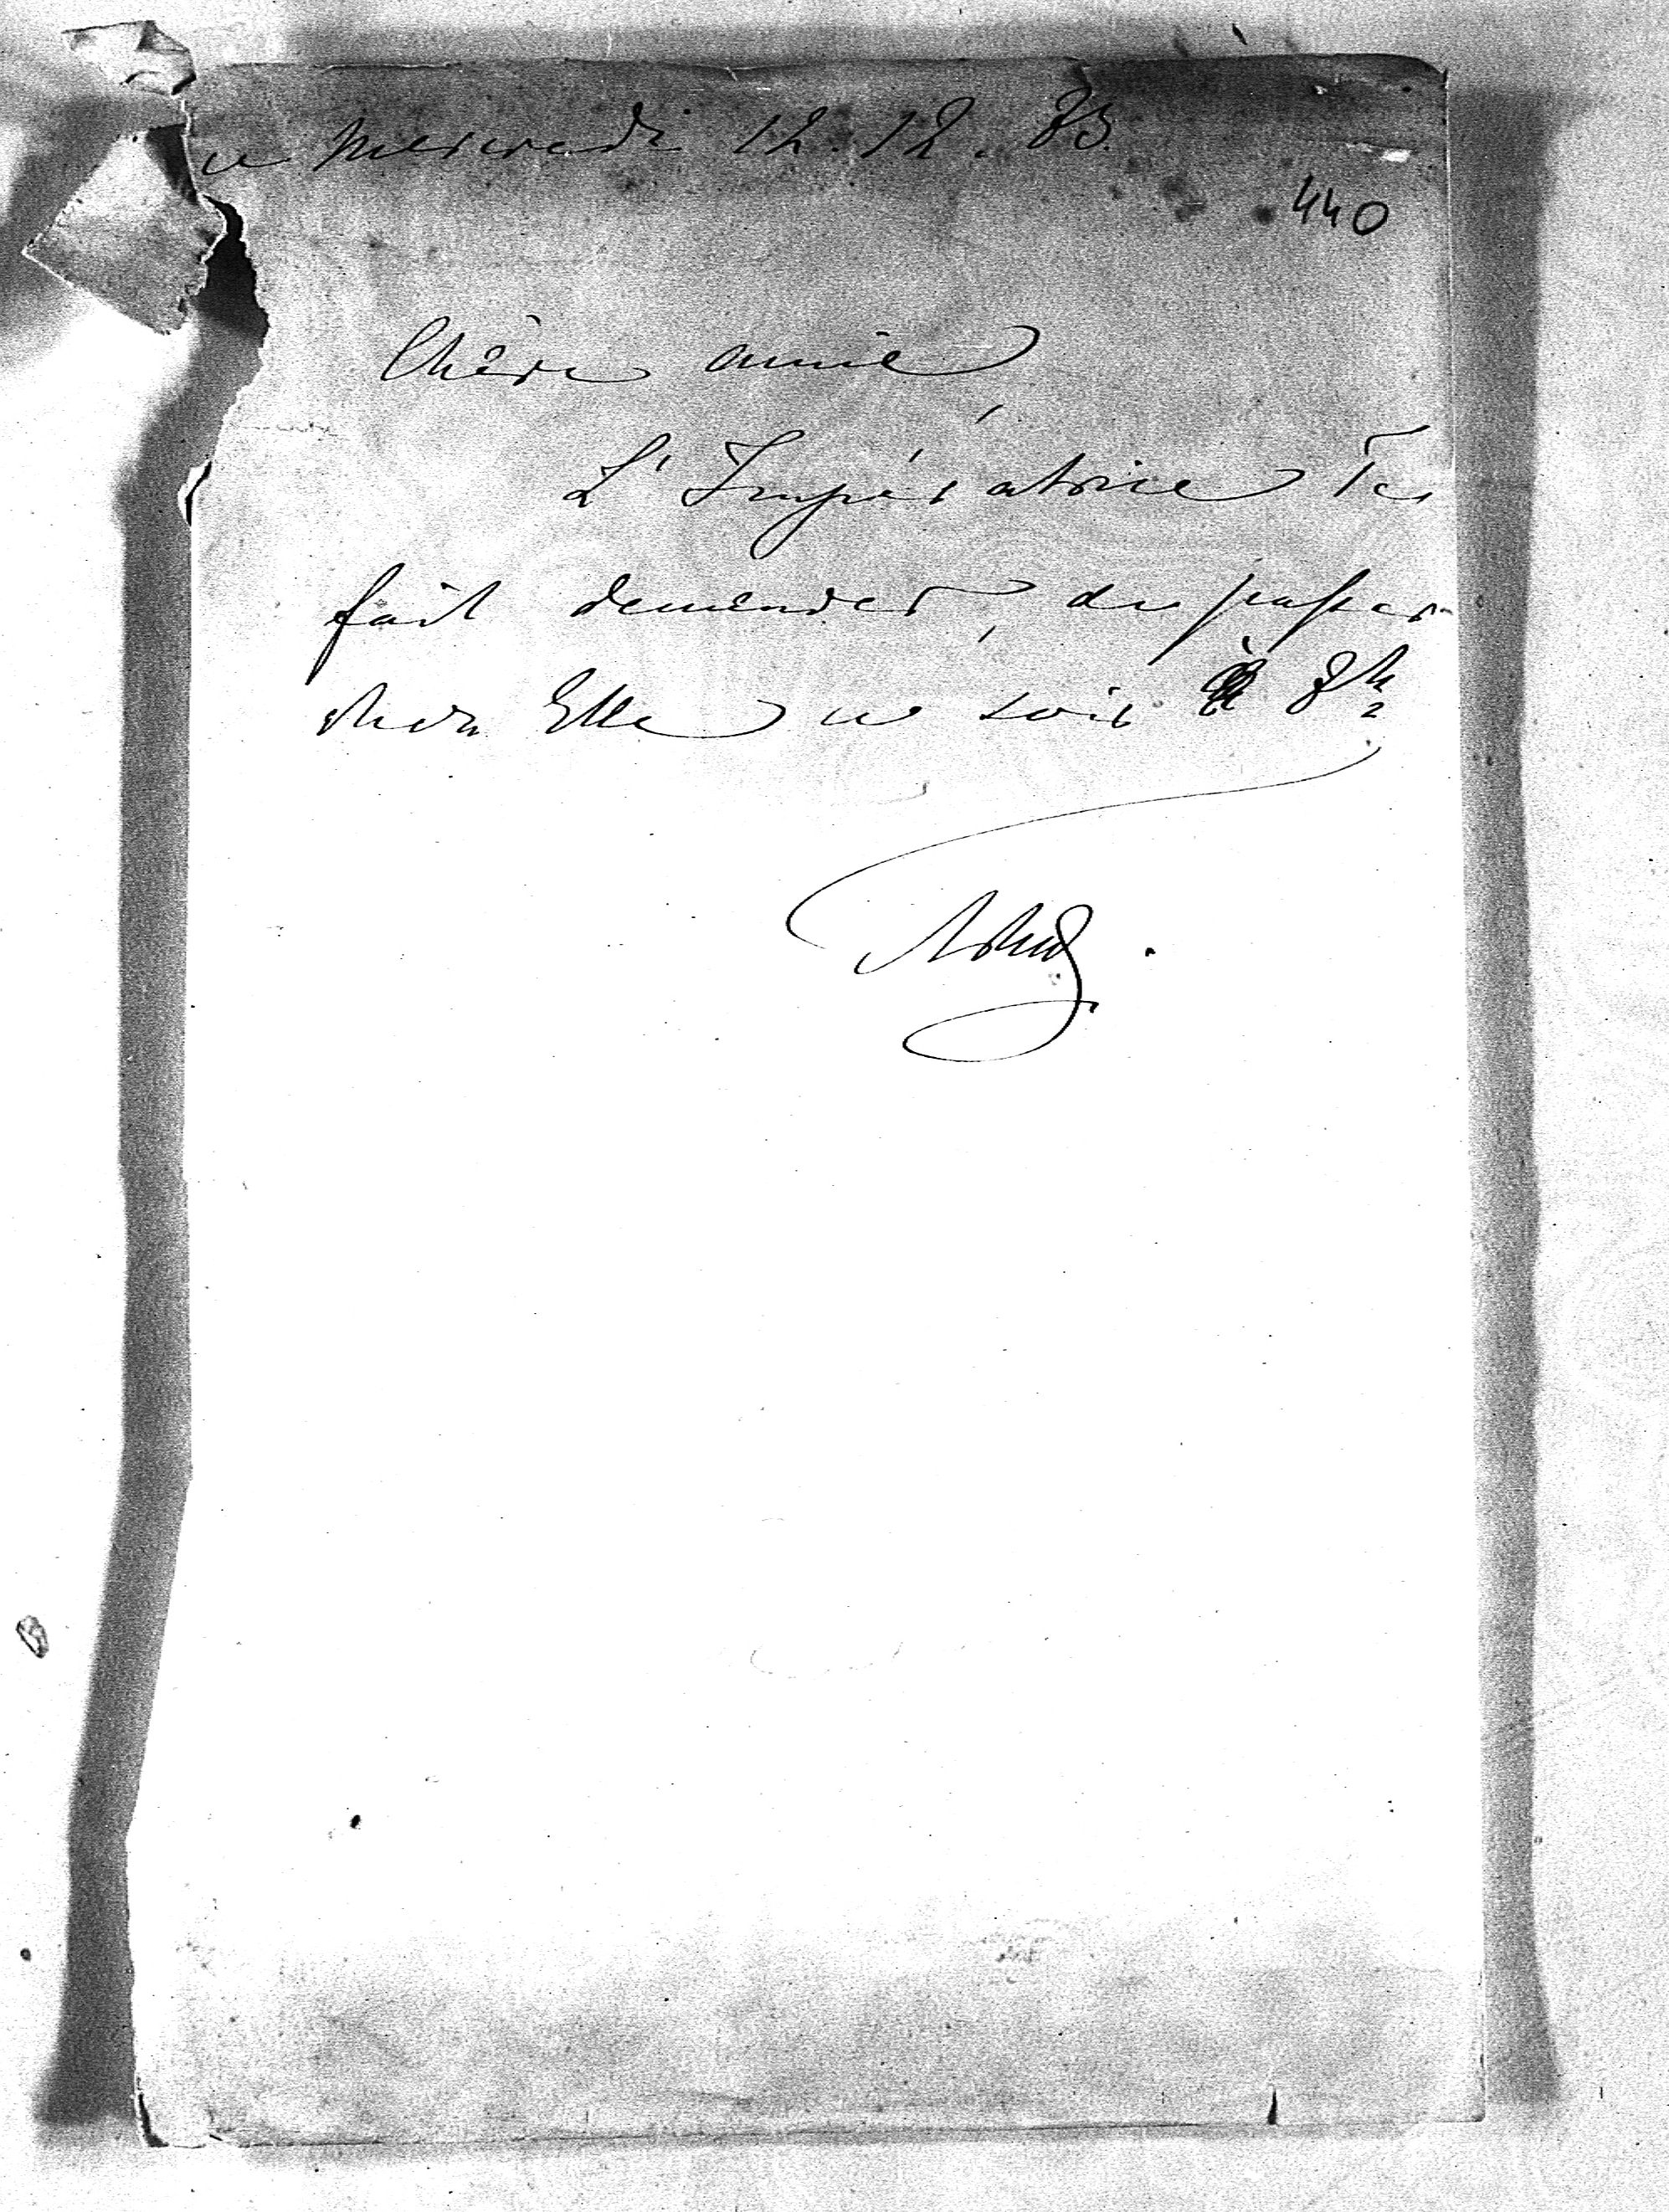 ce Mercredi 12.12.83.
440
Chère amie,
L'Impératrice Te
fait demander, de passer
chez Elle ce soir à 8 h